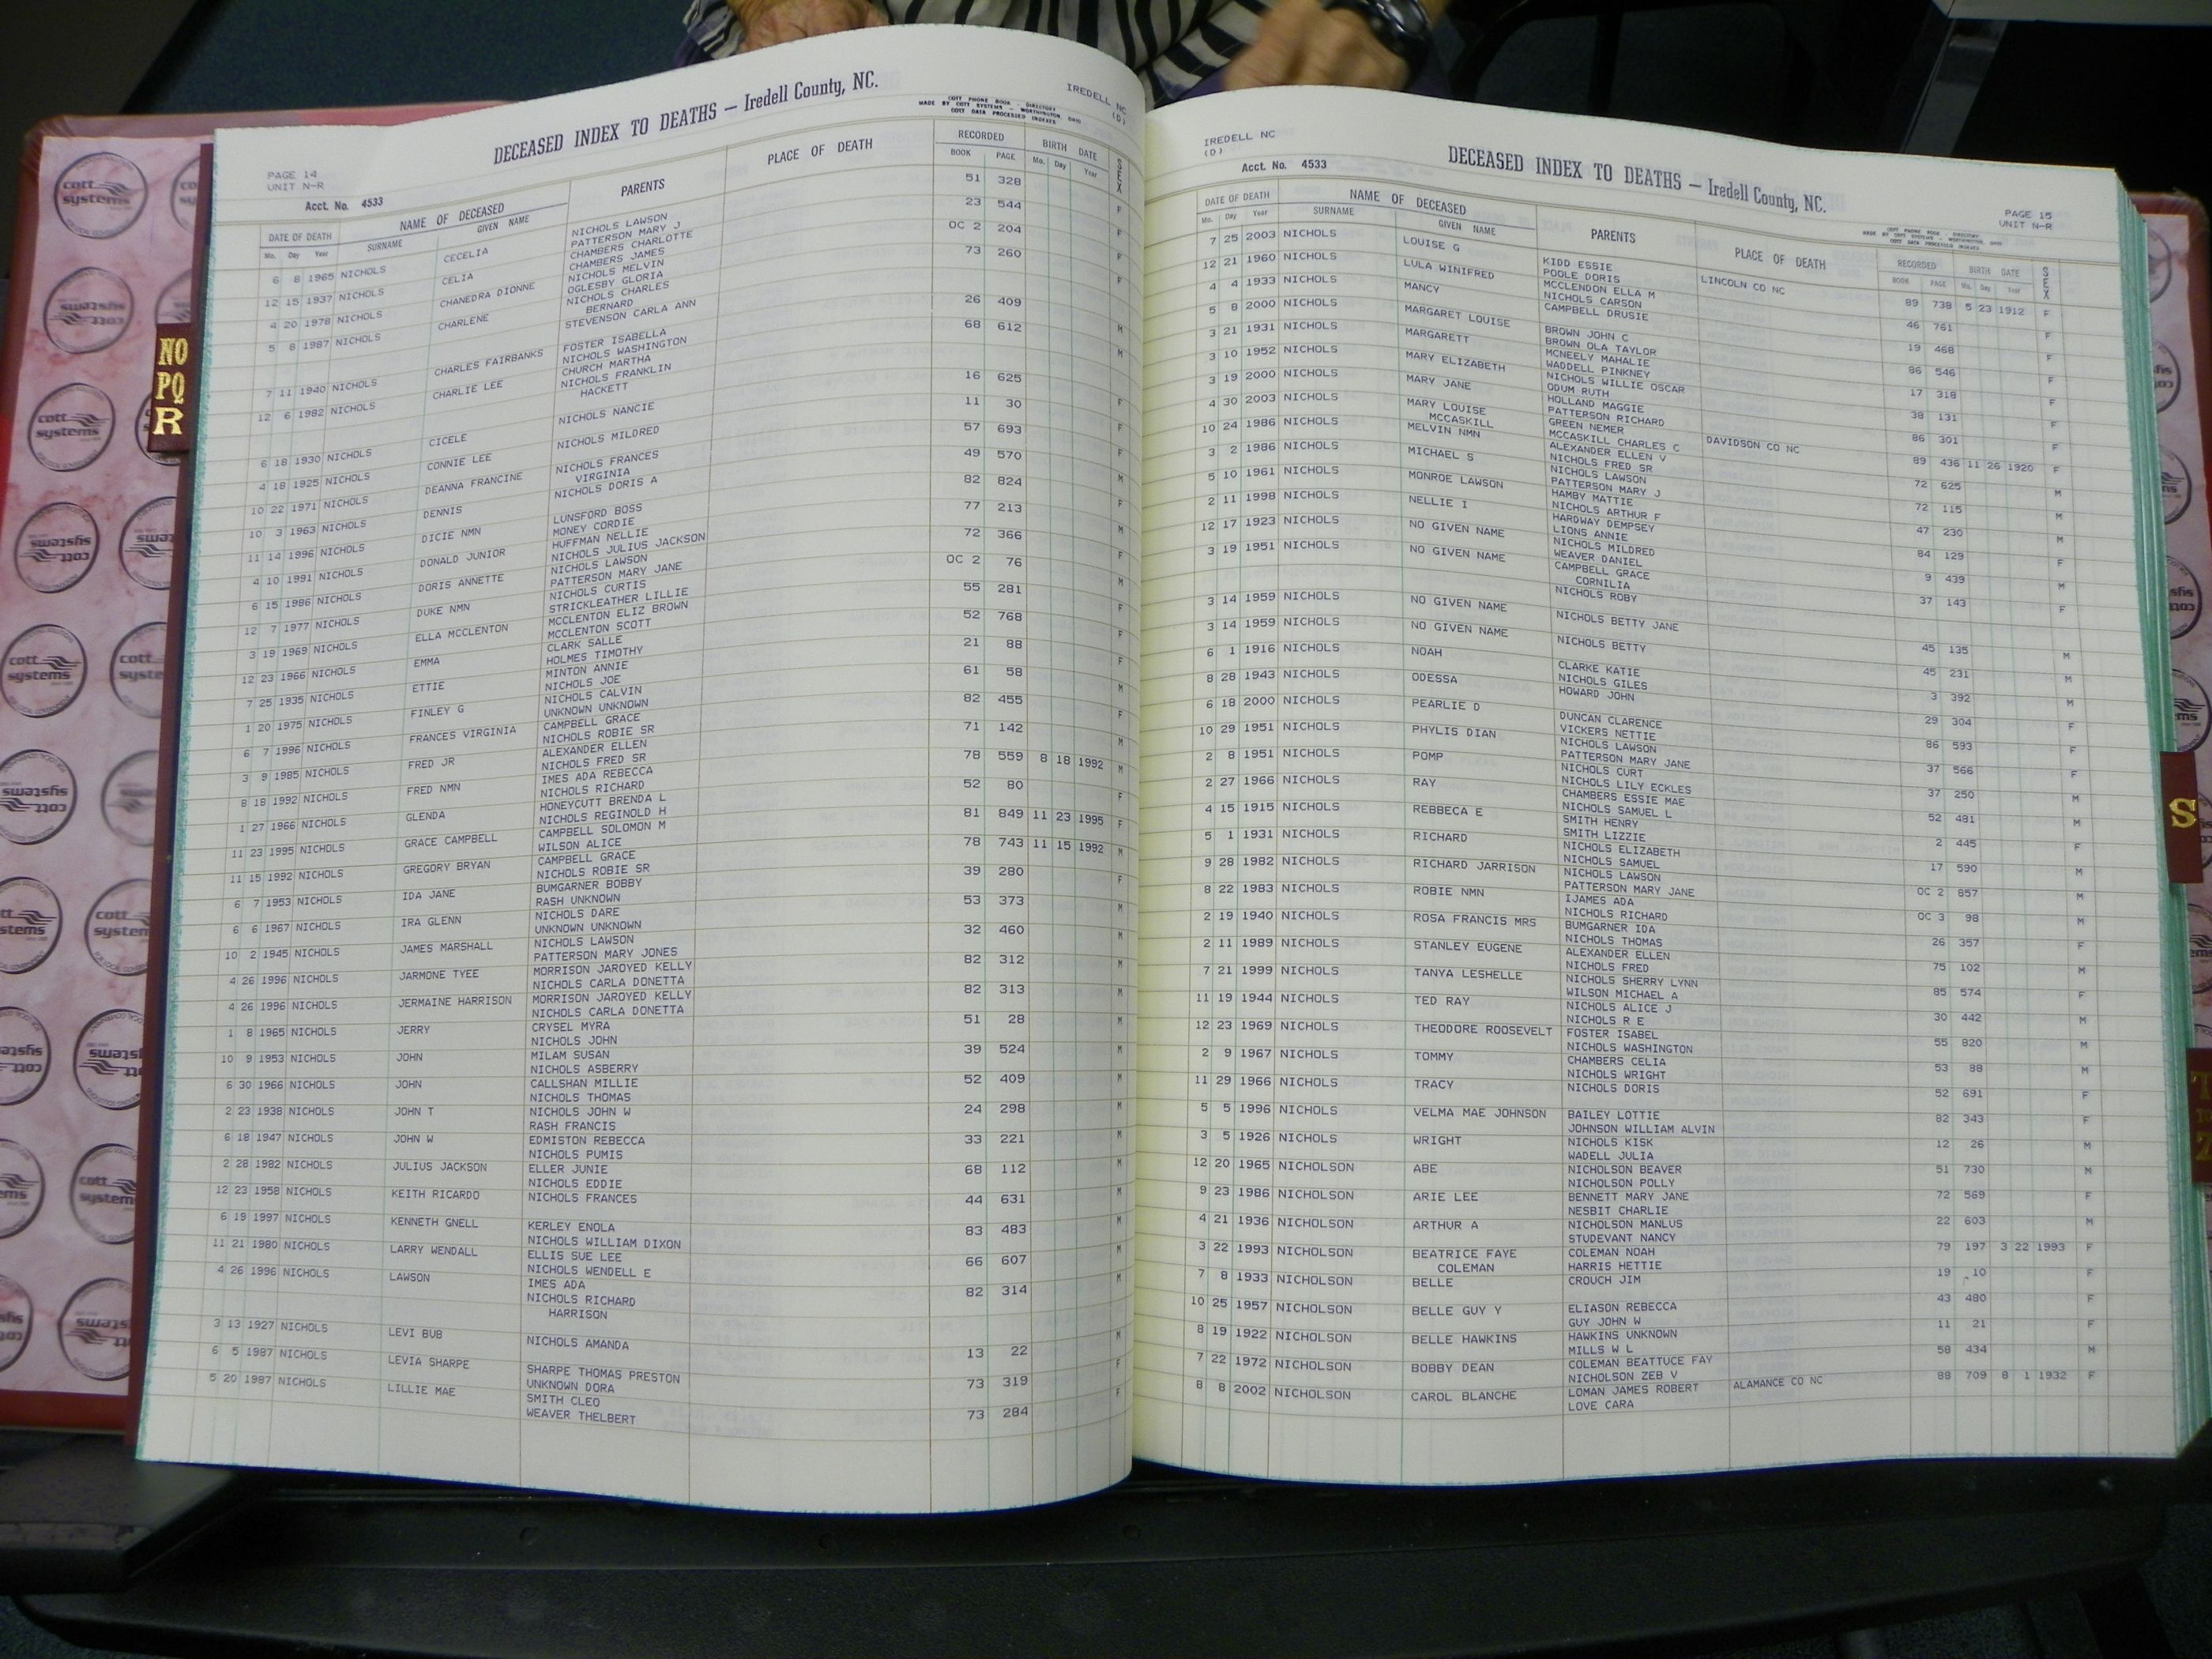 PAGE 14
UNIT N-R
DECEASED INDEX TO DEATHS — Iredell County, NC.
IREDELL NC
(D)
COTT PHONE BOOK - DIRECTORY
MADE BY COTT SYSTEMS - WORTHINGTON, OHIO
COTT DATA PROCESSED INDEXES
Acct. No. 4533
DATE OF DEATH NAME OF DECEASED PARENTS PLACE OF DEATH RECORDED BIRTH DATE SEX
Mo. Day Year SURNAME GIVEN NAME BOOK PAGE Mo. Day Year
6 8 1965 NICHOLS CECELIA NICHOLS LAWSON 51 328 F
PATTERSON MARY J
12 15 1937 NICHOLS CELIA CHAMBERS CHARLOTTE 23 544 F
CHAMBERS JAMES
4 20 1978 NICHOLS CHANEDRA DIONNE NICHOLS MELVIN OC 2 204 F
OGLESBY GLORIA
5 8 1987 NICHOLS CHARLENE NICHOLS CHARLES 73 260 F
BERNARD
STEVENSON CARLA ANN
7 11 1940 NICHOLS CHARLES FAIRBANKS FOSTER ISABELLA 26 409 M
NICHOLS WASHINGTON
12 6 1982 NICHOLS CHARLIE LEE CHURCH MARTHA 68 612 M
NICHOLS FRANKLIN
HACKETT
6 18 1930 NICHOLS CICELE NICHOLS NANCIE 16 625 F
4 18 1925 NICHOLS CONNIE LEE NICHOLS MILDRED 11 30 F
10 22 1971 NICHOLS DEANNA FRANCINE NICHOLS FRANCES 57 693 F
VIRGINIA
10 3 1963 NICHOLS DENNIS NICHOLS DORIS A 49 570 M
11 14 1996 NICHOLS DICIE NMN LUNSFORD BOSS 82 824 F
MONEY CORDIE
4 10 1991 NICHOLS DONALD JUNIOR HUFFMAN NELLIE 77 213 M
NICHOLS JULIUS JACKSON
6 15 1986 NICHOLS DORIS ANNETTE NICHOLS LAWSON 72 366 F
PATTERSON MARY JANE
12 7 1977 NICHOLS DUKE NMN NICHOLS CURTIS OC 2 76 M
STRICKLEATHER LILLIE
3 19 1969 NICHOLS ELLA MCCLENTON MCCLENTON ELIZ BROWN 55 281 F
MCCLENTON SCOTT
12 23 1966 NICHOLS EMMA CLARK SALLE 52 768 F
HOLMES TIMOTHY
7 25 1935 NICHOLS ETTIE MINTON ANNIE 21 88 F
NICHOLS JOE
1 20 1975 NICHOLS FINLEY G NICHOLS CALVIN 61 58 M
UNKNOWN UNKNOWN
6 7 1996 NICHOLS FRANCES VIRGINIA CAMPBELL GRACE 82 455 F
NICHOLS ROBIE SR
3 9 1985 NICHOLS FRED JR ALEXANDER ELLEN 71 142 M
NICHOLS FRED SR
8 18 1992 NICHOLS FRED NMN IMES ADA REBECCA 78 559 8 18 1992 M
NICHOLS RICHARD
1 27 1966 NICHOLS GLENDA HONEYCUTT BRENDA L 52 80 F
NICHOLS REGINOLD H
11 23 1995 NICHOLS GRACE CAMPBELL CAMPBELL SOLOMON M 81 849 11 23 1995 F
WILSON ALICE
11 15 1992 NICHOLS GREGORY BRYAN CAMPBELL GRACE 78 743 11 15 1992 M
NICHOLS ROBIE SR
6 7 1953 NICHOLS IDA JANE BUMGARNER BOBBY 39 280 F
RASH UNKNOWN
6 6 1967 NICHOLS IRA GLENN NICHOLS DARE 53 373 M
UNKNOWN UNKNOWN
10 2 1945 NICHOLS JAMES MARSHALL NICHOLS LAWSON 32 460 M
PATTERSON MARY JONES
4 26 1996 NICHOLS JARMONE TYEE MORRISON JAROYED KELLY 82 312 M
NICHOLS CARLA DONETTA
4 26 1996 NICHOLS JERMAINE HARRISON MORRISON JAROYED KELLY 82 313 M
NICHOLS CARLA DONETTA
1 8 1965 NICHOLS JERRY CRYSEL MYRA 51 28 M
NICHOLS JOHN
10 9 1953 NICHOLS JOHN MILAM SUSAN 39 524 M
NICHOLS ASBERRY
6 30 1966 NICHOLS JOHN CALLSHAN MILLIE 52 409 M
NICHOLS THOMAS
2 23 1938 NICHOLS JOHN T NICHOLS JOHN W 24 298 M
RASH FRANCIS
6 18 1947 NICHOLS JOHN W EDMISTON REBECCA 33 221 M
NICHOLS PUMIS
2 28 1982 NICHOLS JULIUS JACKSON ELLER JUNIE 68 112 M
NICHOLS EDDIE
12 23 1958 NICHOLS KEITH RICARDO NICHOLS FRANCES 44 631 M
6 19 1997 NICHOLS KENNETH GNELL KERLEY ENOLA 83 483 M
NICHOLS WILLIAM DIXON
11 21 1980 NICHOLS LARRY WENDALL ELLIS SUE LEE 66 607 M
NICHOLS WENDELL E
4 26 1996 NICHOLS LAWSON IMES ADA 82 314 M
NICHOLS RICHARD
HARRISON
3 13 1927 NICHOLS LEVI BUB NICHOLS AMANDA 13 22 M
6 5 1987 NICHOLS LEVIA SHARPE SHARPE THOMAS PRESTON 73 319 F
UNKNOWN DORA
5 20 1987 NICHOLS LILLIE MAE SMITH CLEO 73 284 F
WEAVER THELBERT
IREDELL NC
(D)
Acct. No. 4533
DECEASED INDEX TO DEATHS — Iredell County, NC.
PAGE 15
UNIT N-R
COTT PHONE BOOK - DIRECTORY
MADE BY COTT SYSTEMS - WORTHINGTON, OHIO
COTT DATA PROCESSED INDEXES
DATE OF DEATH NAME OF DECEASED PARENTS PLACE OF DEATH RECORDED BIRTH DATE SEX
Mo. Day Year SURNAME GIVEN NAME BOOK PAGE Mo. Day Year
7 25 2003 NICHOLS LOUISE G KIDD ESSIE LINCOLN CO NC 89 738 5 23 1912 F
POOLE DORIS
12 21 1960 NICHOLS LULA WINIFRED MCCLENDON ELLA M 46 761 F
NICHOLS CARSON
4 4 1933 NICHOLS MANCY CAMPBELL DRUSIE 19 468 F
5 8 2000 NICHOLS MARGARET LOUISE BROWN JOHN C 86 546 F
BROWN OLA TAYLOR
3 21 1931 NICHOLS MARGARETT MCNEELY MAHALIE 17 318 F
WADDELL PINKNEY
3 10 1952 NICHOLS MARY ELIZABETH NICHOLS WILLIE OSCAR 38 131 F
ODUM RUTH
3 19 2000 NICHOLS MARY JANE HOLLAND MAGGIE 86 301 F
PATTERSON RICHARD
4 30 2003 NICHOLS MARY LOUISE GREEN NEMER DAVIDSON CO NC 89 436 11 26 1920 F
MCCASKILL MCCASKILL CHARLES C
10 24 1986 NICHOLS MELVIN NMN ALEXANDER ELLEN V 72 625 M
NICHOLS FRED SR
3 2 1986 NICHOLS MICHAEL S NICHOLS LAWSON 72 115 M
PATTERSON MARY J
5 10 1961 NICHOLS MONROE LAWSON HAMBY MATTIE 47 230 M
NICHOLS ARTHUR F
2 11 1998 NICHOLS NELLIE I HARDWAY DEMPSEY 84 129 F
LIONS ANNIE
12 17 1923 NICHOLS NO GIVEN NAME NICHOLS MILDRED 9 439 M
WEAVER DANIEL
3 19 1951 NICHOLS NO GIVEN NAME CAMPBELL GRACE 37 143 F
CORNILIA
NICHOLS ROBY
3 14 1959 NICHOLS NO GIVEN NAME NICHOLS BETTY JANE 45 135 M
3 14 1959 NICHOLS NO GIVEN NAME NICHOLS BETTY 45 231 M
6 1 1916 NICHOLS NOAH CLARKE KATIE 3 392 M
NICHOLS GILES
8 28 1943 NICHOLS ODESSA HOWARD JOHN 29 304 F
6 18 2000 NICHOLS PEARLIE D DUNCAN CLARENCE 86 593 F
VICKERS NETTIE
10 29 1951 NICHOLS PHYLIS DIAN NICHOLS LAWSON 37 566 F
PATTERSON MARY JANE
2 8 1951 NICHOLS POMP NICHOLS CURT 37 250 M
NICHOLS LILY ECKLES
2 27 1966 NICHOLS RAY CHAMBERS ESSIE MAE 52 481 M
NICHOLS SAMUEL L
4 15 1915 NICHOLS REBBECA E SMITH HENRY 2 445 F
SMITH LIZZIE
5 1 1931 NICHOLS RICHARD NICHOLS ELIZABETH 17 590 M
NICHOLS SAMUEL
9 28 1982 NICHOLS RICHARD JARRISON NICHOLS LAWSON OC 2 857 M
PATTERSON MARY JANE
8 22 1983 NICHOLS ROBIE NMN IJAMES ADA OC 3 98 M
NICHOLS RICHARD
2 19 1940 NICHOLS ROSA FRANCIS MRS BUMGARNER IDA 26 357 F
NICHOLS THOMAS
2 11 1989 NICHOLS STANLEY EUGENE ALEXANDER ELLEN 75 102 M
NICHOLS FRED
7 21 1999 NICHOLS TANYA LESHELLE NICHOLS SHERRY LYNN 85 574 F
WILSON MICHAEL A
11 19 1944 NICHOLS TED RAY NICHOLS ALICE J 30 442 M
NICHOLS R E
12 23 1969 NICHOLS THEODORE ROOSEVELT FOSTER ISABEL 55 820 M
NICHOLS WASHINGTON
2 9 1967 NICHOLS TOMMY CHAMBERS CELIA 53 88 M
NICHOLS WRIGHT
11 29 1966 NICHOLS TRACY NICHOLS DORIS 52 691 F
5 5 1996 NICHOLS VELMA MAE JOHNSON BAILEY LOTTIE 82 343 F
JOHNSON WILLIAM ALVIN
3 5 1926 NICHOLS WRIGHT NICHOLS KISK 12 26 M
WADELL JULIA
12 20 1965 NICHOLSON ABE NICHOLSON BEAVER 51 730 M
NICHOLSON POLLY
9 23 1986 NICHOLSON ARIE LEE BENNETT MARY JANE 72 569 F
NESBIT CHARLIE
4 21 1936 NICHOLSON ARTHUR A NICHOLSON MANLUS 22 603 M
STUDEVANT NANCY
3 22 1993 NICHOLSON BEATRICE FAYE COLEMAN NOAH 79 197 3 22 1993 F
COLEMAN HARRIS HETTIE
7 8 1933 NICHOLSON BELLE CROUCH JIM 19 10 F
10 25 1957 NICHOLSON BELLE GUY Y ELIASON REBECCA 43 480 F
GUY JOHN W
8 19 1922 NICHOLSON BELLE HAWKINS HAWKINS UNKNOWN 11 21 F
MILLS W L
7 22 1972 NICHOLSON BOBBY DEAN COLEMAN BEATTUCE FAY 58 434 M
NICHOLSON ZEB V
8 8 2002 NICHOLSON CAROL BLANCHE LOMAN JAMES ROBERT ALAMANCE CO NC 88 709 8 1 1932 F
LOVE CARA
NO
PQ
R
S
T
Z
cott
systems